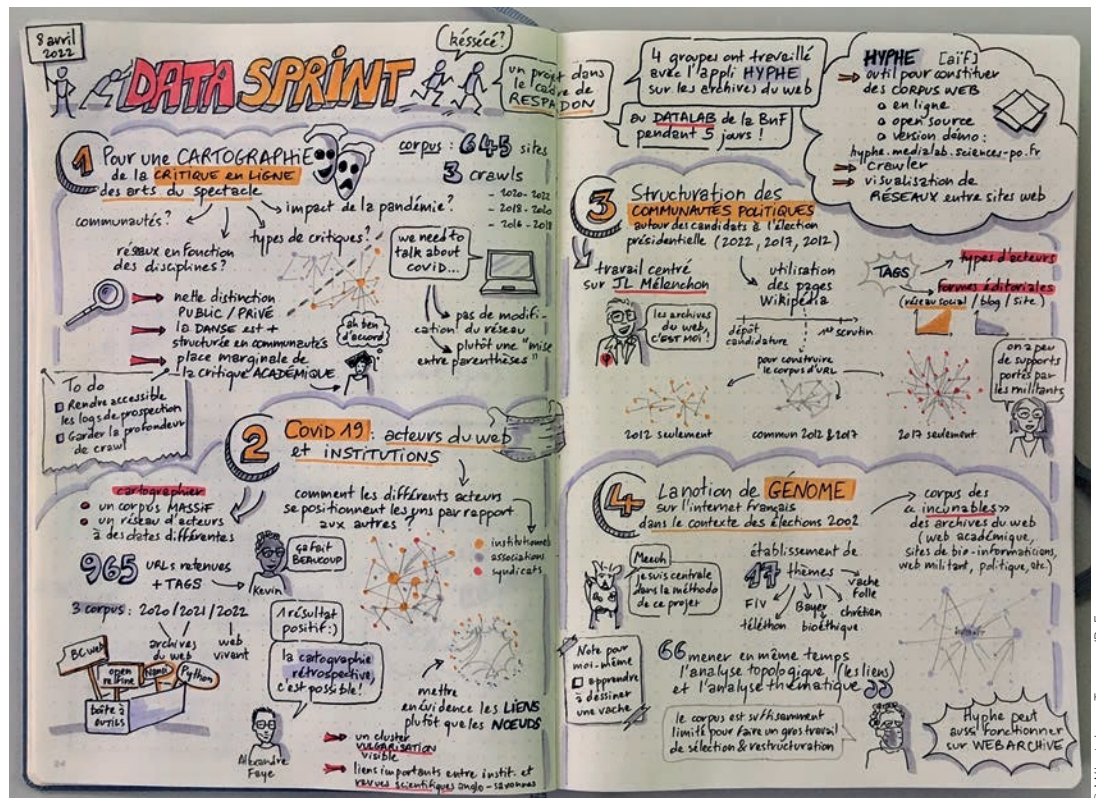 8 avril
2022
DATA SPRINT
késsécé?
un projet dans
le cadre de
RESPADON
1 Pour une CARTOGRAPHIE
de la CRITIQUE EN LIGNE
des arts du spectacle
corpus : 645 sites
3 crawls
- 2020-2022
- 2018-2020
- 2016-2018
communautés?
réseaux en fonction
des disciplines?
types de critiques?
impact de la pandémie?
we need to
talk about
covid...
nette distinction
PUBLIC / PRIVÉ
la DANSE est +
structurée en communautés
place marginale de
la critique ACADÉMIQUE
ah ben
d'accord
pas de modifi-
cation du réseau
plutôt une "mise
entre parenthèses"
To do
Rendre accessible
les logs de prospection
Garder la profondeur
de crawl
2 Covid 19 : acteurs du web
et INSTITUTIONS
cartographier
un corpus MASSIF
un réseau d'acteurs
à des dates différentes
comment les différents acteurs
se positionnent les uns par rapport
aux autres ?
965 URLs retenues
+ TAGS
ça fait
BEAUCOUP
Kevin
institutionnels
associations
syndicats
3 corpus : 2020 / 2021 / 2022
archives
du web
web
vivant
BCweb
open
refine
Nanni
Python
boîte à
outils
1 résultat
positif :)
la cartographie
rétrospective,
c'est possible!
Alexandre
Faye
mettre
en évidence les LIENS
plutôt que les NOEUDS
un cluster
VULGARISATION
visible
liens importants entre instit. et
revues scientifiques anglo-saxonnes
4 groupes ont travaillé
avec l'appli HYPHE
sur les archives du web
au DATALAB de la BnF
pendant 5 jours !
HYPHE [aïf]
outil pour constituer
des CORPUS WEB
en ligne
open source
version démo :
hyphe.medialab.sciences-po.fr
crawler
visualisation de
RÉSEAUX entre sites web
3 Structuration des
COMMUNAUTÉS POLITIQUES
autour des candidats à l'élection
présidentielle (2022, 2017, 2012)
travail centré
sur JL Mélenchon
les archives
du web,
C'EST MOI !
utilisation
des pages
Wikipédia
dépôt
candidature
1er scrutin
pour construire
le corpus d'URL
TAGS
types d'acteurs
formes éditoriales
(réseau social / blog / site)
on a peu
de supports
portés par
les militants
2012 seulement
commun 2012 & 2017
2017 seulement
4 La notion de GÉNOME
sur l'internet français
dans le contexte des élections 2002
corpus des
« incunables »
des archives du web
(web académique,
sites de bio-informaticiens,
web militant, politique, etc.)
Meeoh
je suis centrale
dans la méthodo
de ce projet
établissement de
17 thèmes
vache
folle
FIV
Bayer
chrétien
téléthon
bioéthique
Note pour
moi-même
apprendre
à dessiner
une vache
66 mener en même temps
l'analyse topologique (les liens)
et l'analyse thématique 99
le corpus est suffisamment
limité pour faire un gros travail
de sélection & restructuration
Hyphe peut
aussi fonctionner
sur WEBARCHIVE